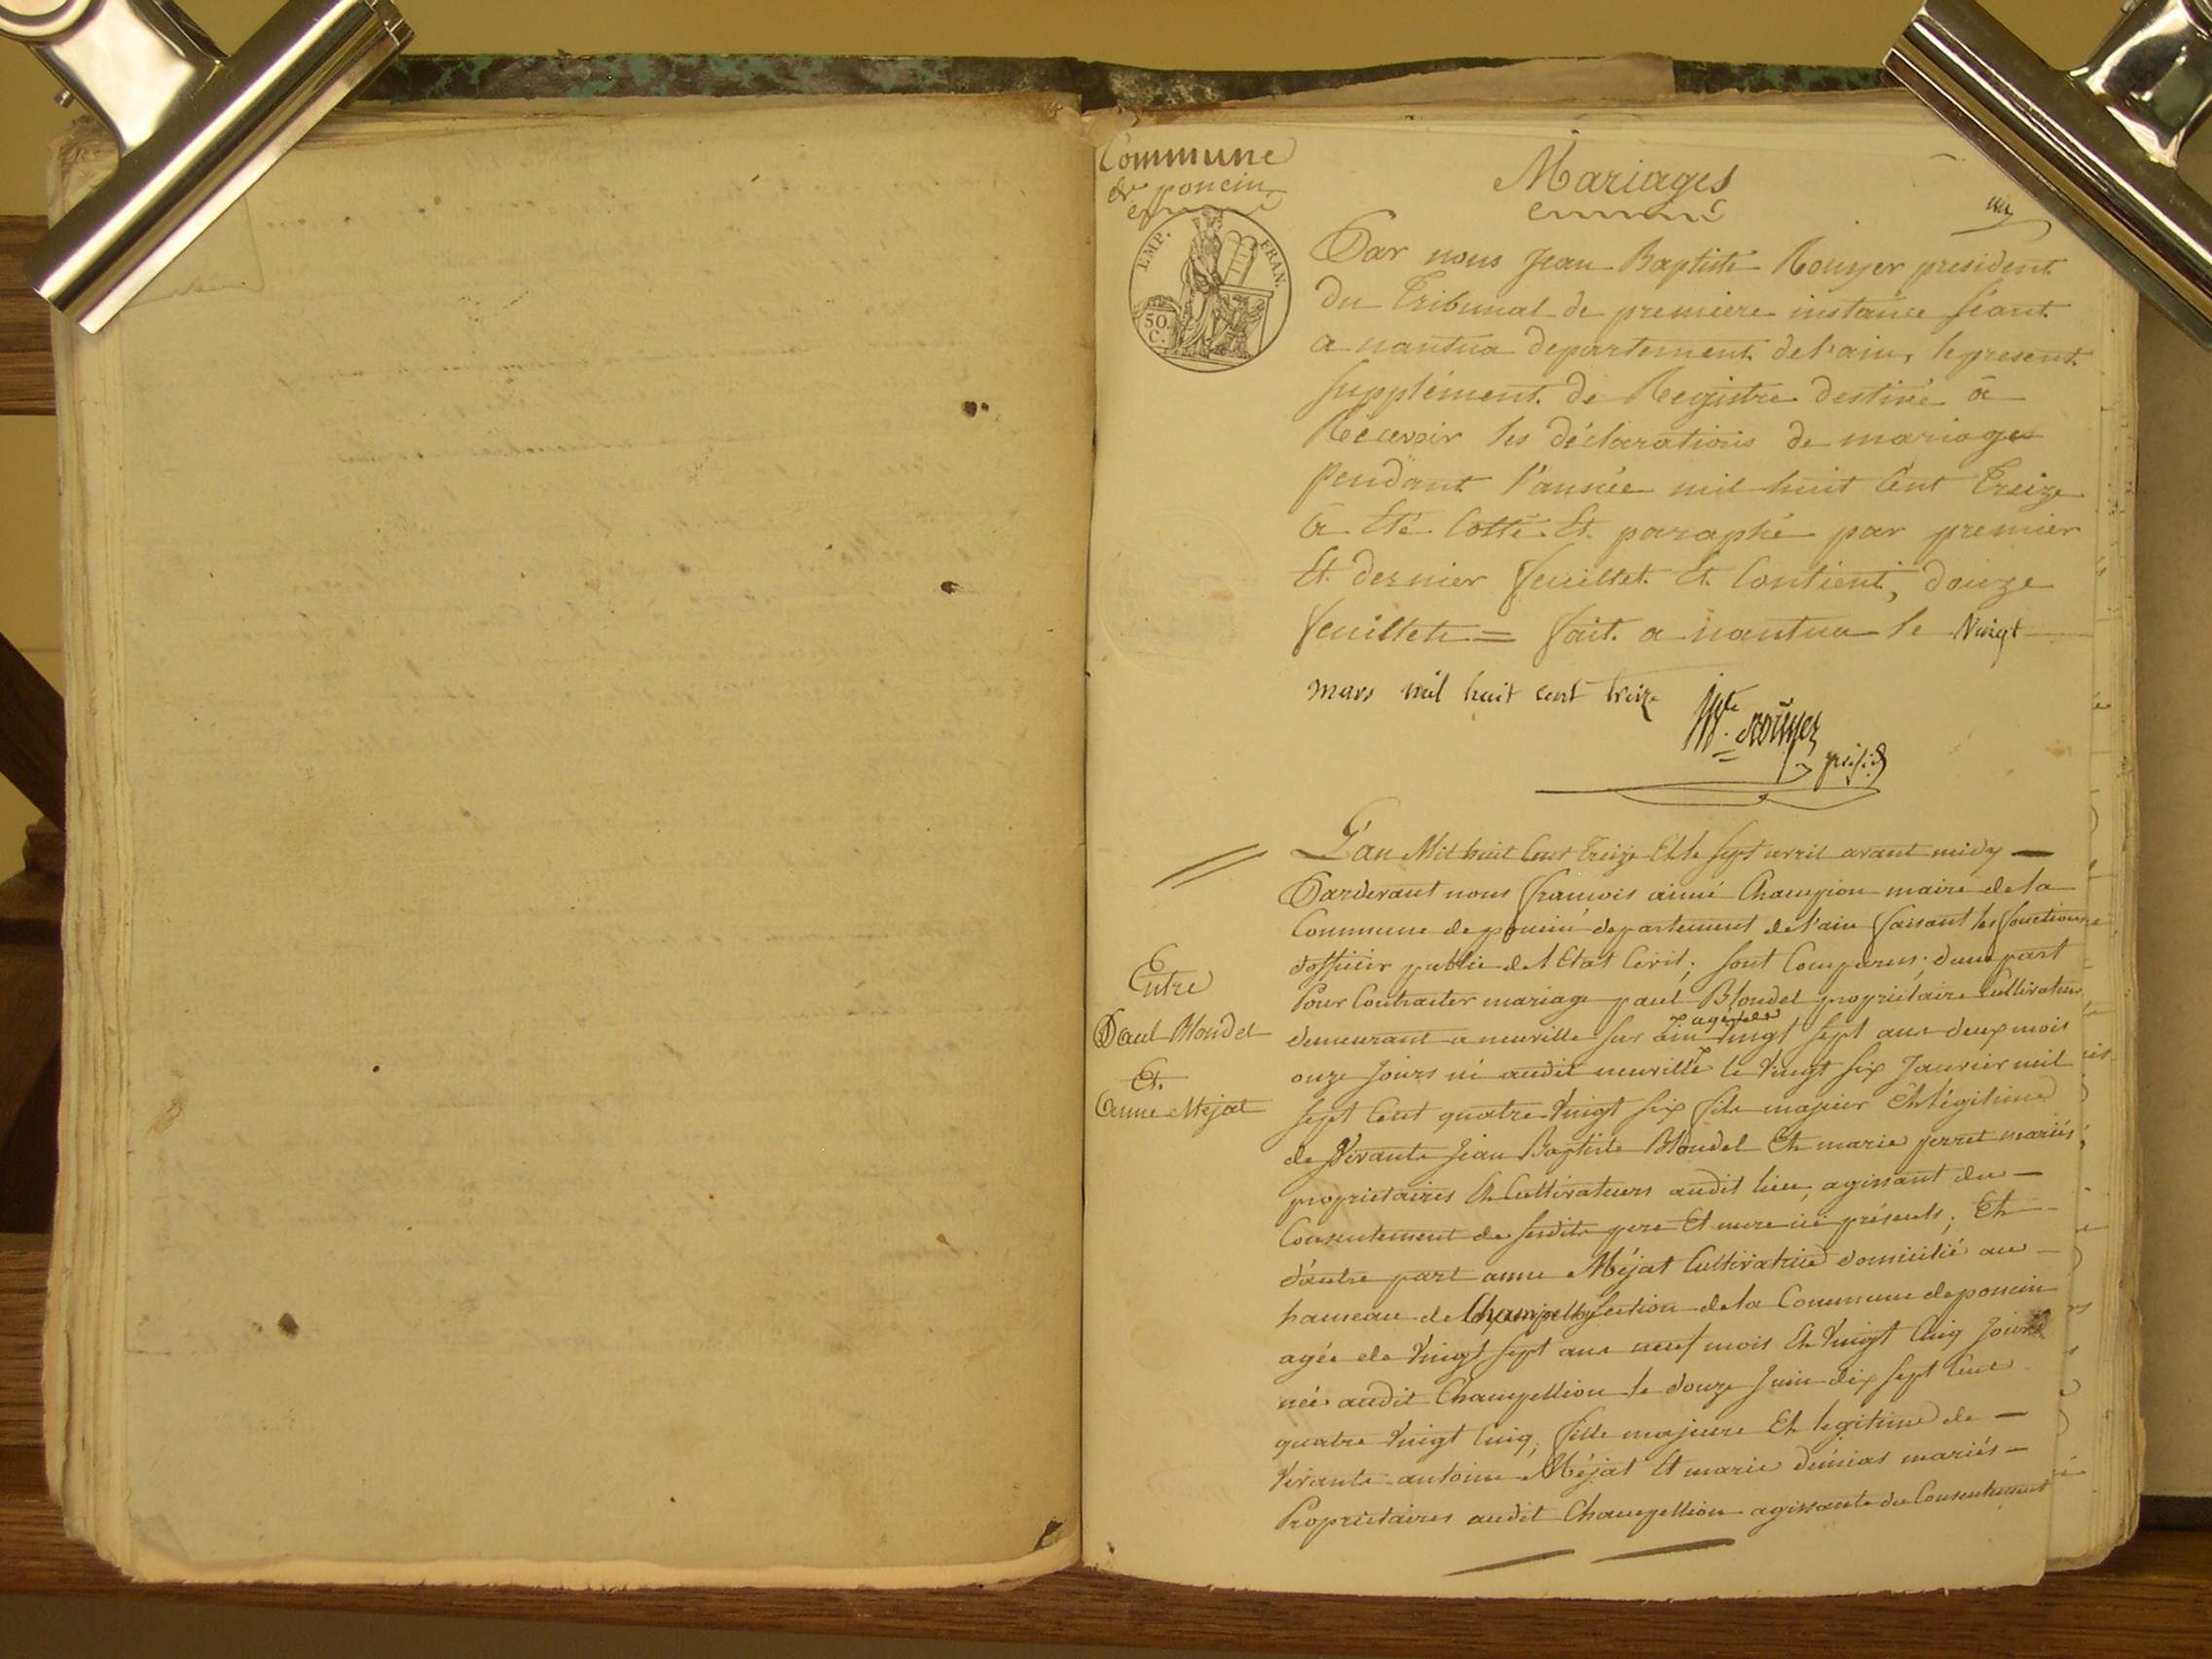 Commune
de poncin
Mariages
EMP. FRAN.
50
C.
Par nous Jean Baptiste Rouyer president
du Tribunal de premiere instance séant
a nantua departement de l'ain, le present
supplément de Registre destiné à
Recevoir les déclarations de mariages
pendant l'année mil huit Cent Treize
a été Cotté Et paraphé par premier
Et dernier feuillet Et Contient, douze
feuillets = fait a nantua le Vingt
mars mil huit cent treize
Rouyer
presid
L'an Mil huit Cent Treize Et le sept avril avant midy —
Pardevant nous francois aimé Champion maire de la
Commune de poncin departement de l'ain faisant les fonctions
d'officier public de l'Etat Civil; sont Comparus; d'une part
Pour Contracter mariage paul Blondel propriétaire Cultivateur
agé de
demeurant a neuville sur ain Vingt sept ans deux mois
onze Jours né audit neuville le Vingt six Janvier mil
sept Cent quatre Vingt six fils majeur Et légitime
de Vivants Jean Baptiste Blondel Et marie perret mariés
proprietaires Et Cultivateurs audit lieu, agissant du —
Consentement de sesdits pere Et mere ici présents; Et
d'autre part anne Méjat Cultivatrice domicilié au
hameau de section de la Commune de poncin
agée de Vingt sept ans neuf mois Et Vingt Cinq Jours
née audit Champellion le douze Juin dix sept Cent
quatre Vingt Cinq, fille majeure Et legitime de —
Vivants antoine Méjat Et marie mariés —
Proprietaires audit Champellion agissante du Consentement
Entre
Paul Blondel
Et
Anne Mejat